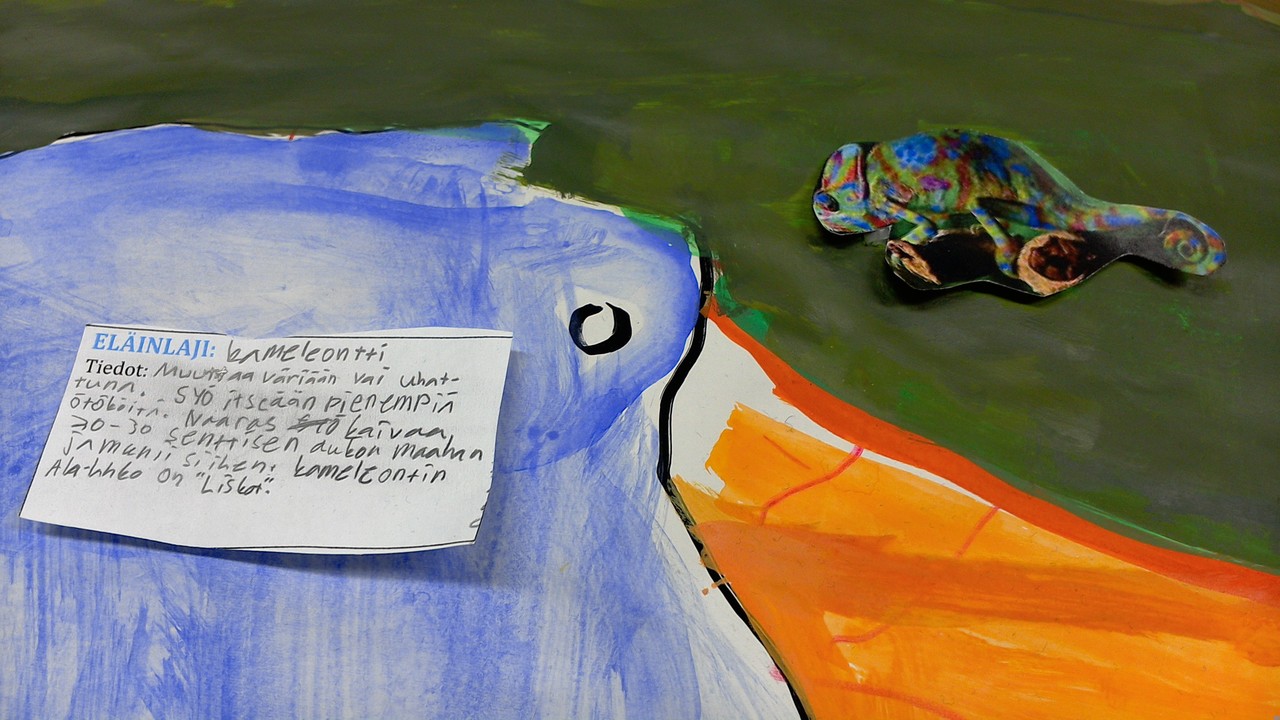 ELÄINLAJI: kameleontti
Tiedot: Muuttaa väriään vai uhat-
tuna. SYÖ itseään pienempiä
ötököitä. Naaras kaivaa
30-30 senttisen aukon maahan
ja munii siihen. kameleontin
Alalahko on "Liskot".